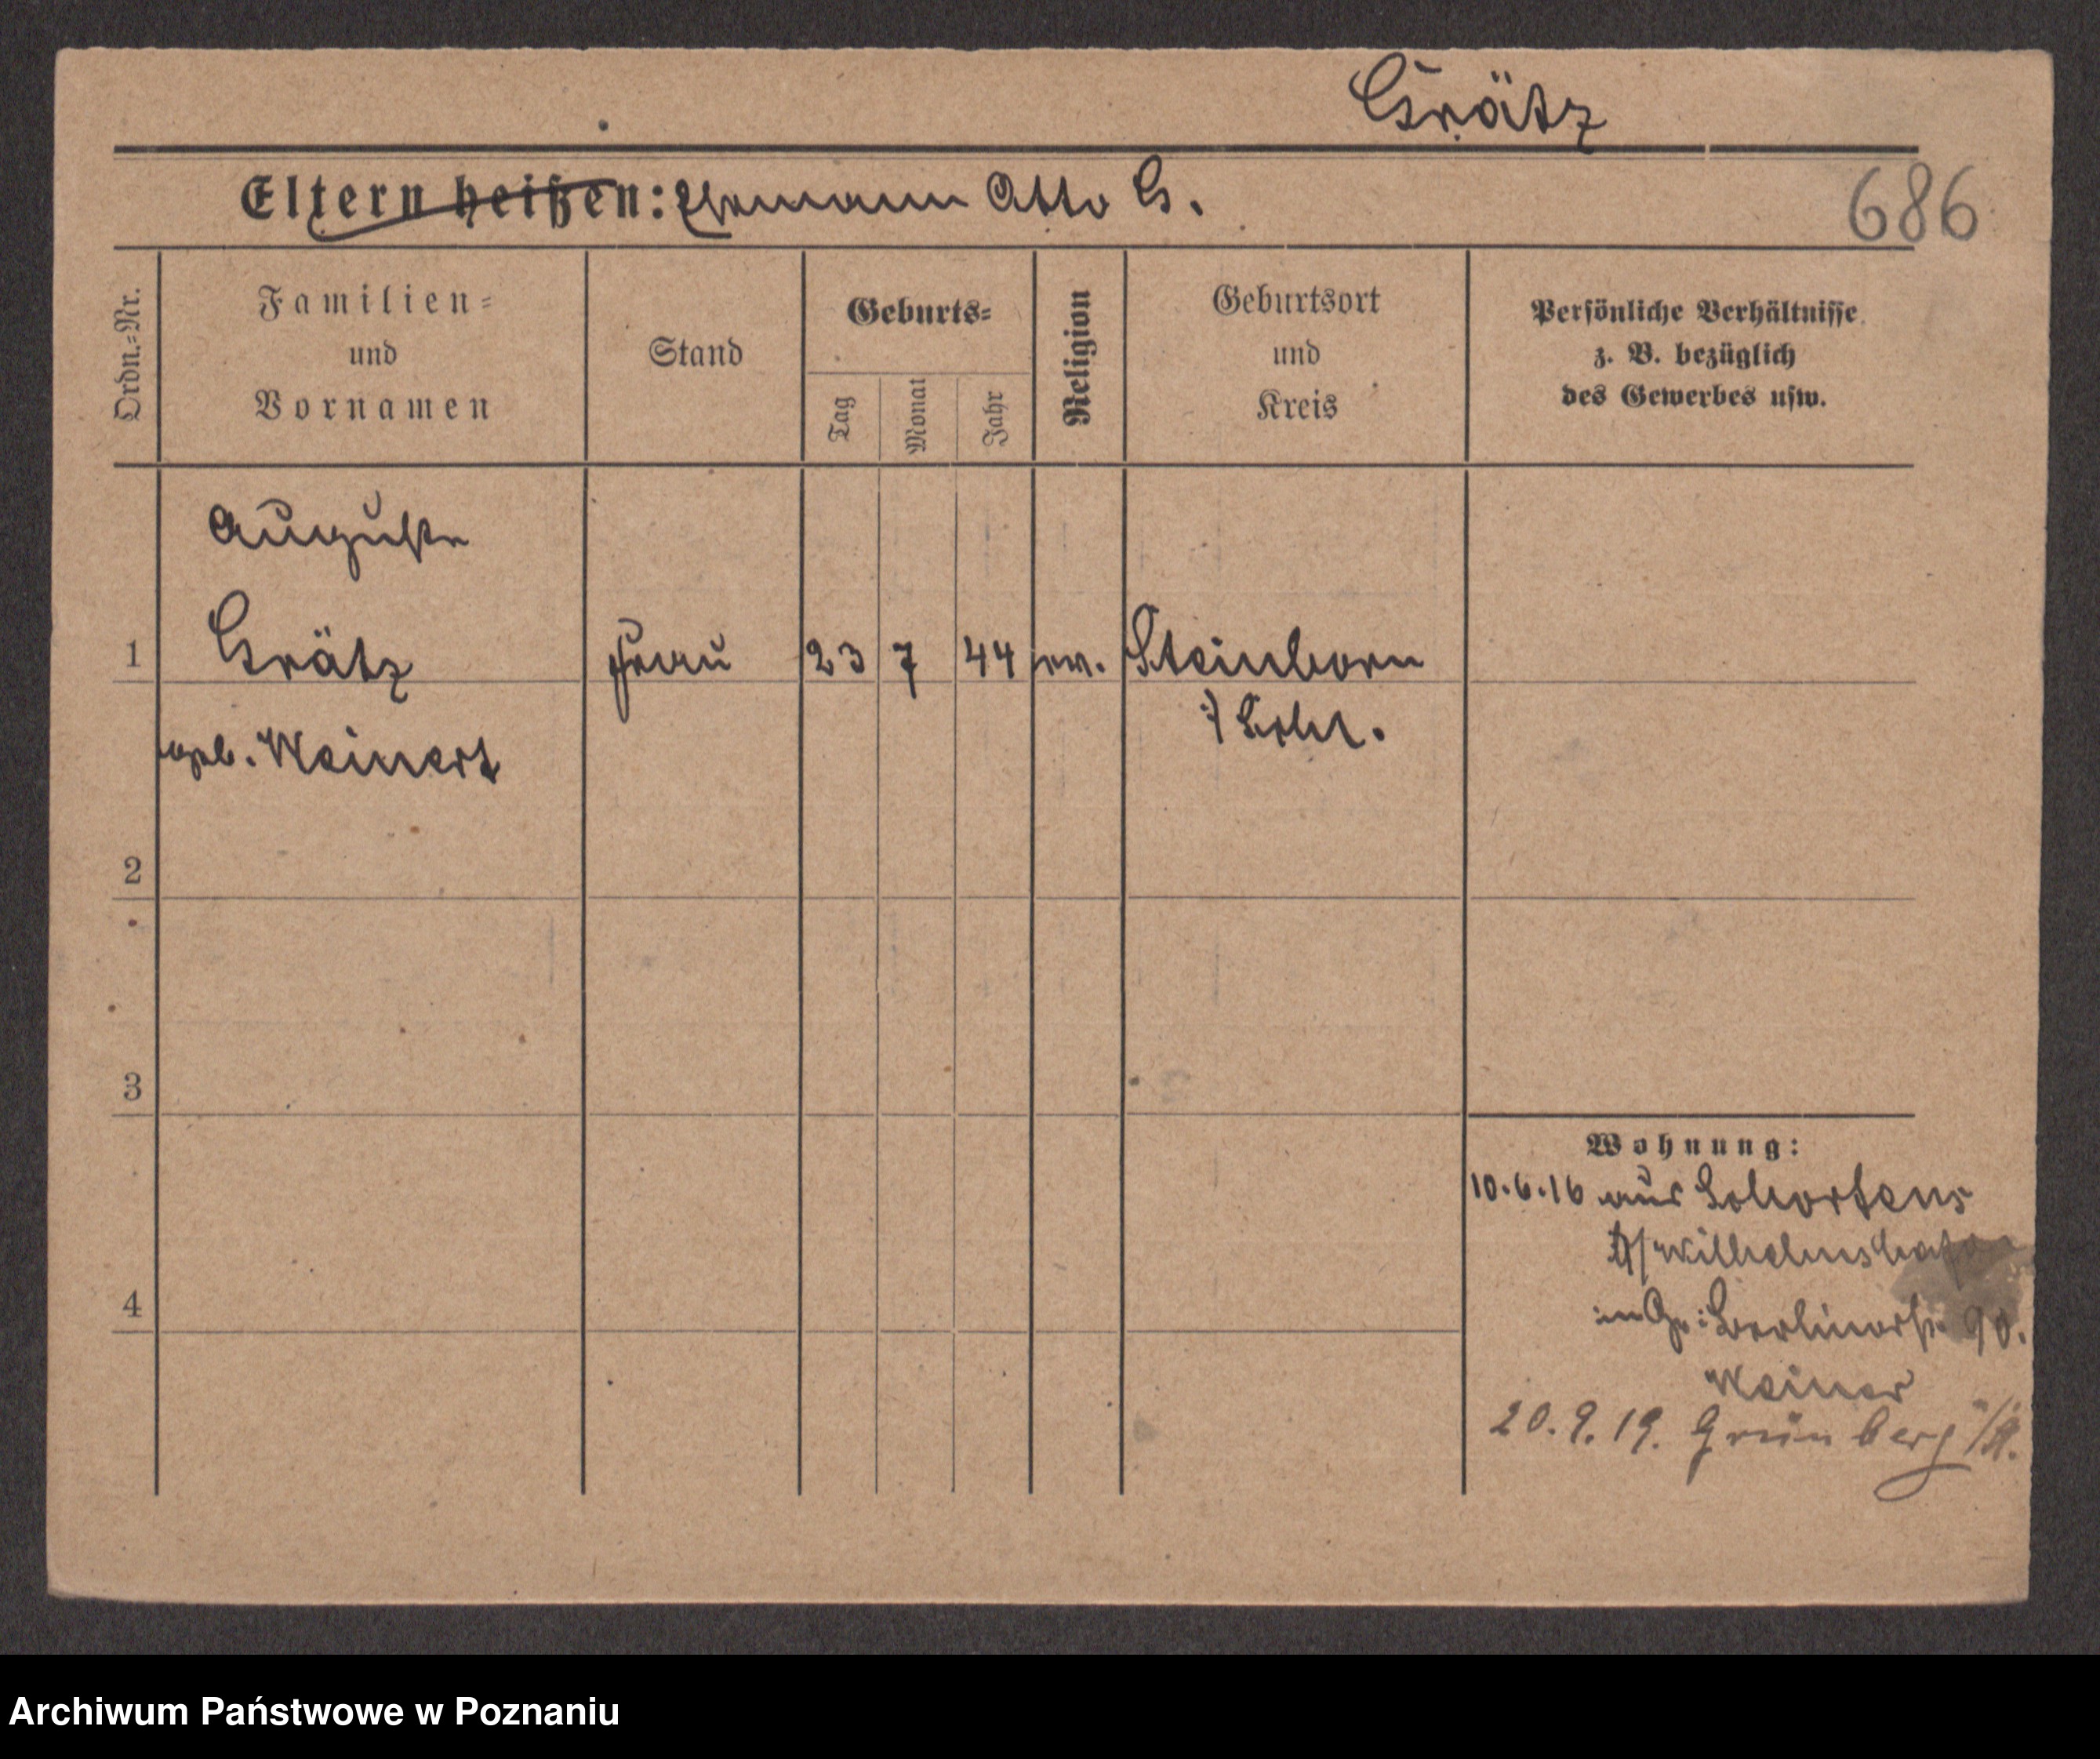 Grätz
Eltern heißen: Ehemann Otto G.
686
Ordn.-Nr.
Familien-
und
Vornamen
Stand
Geburts-
Tag
Monat
Jahr
Religion
Geburtsort
und
Kreis
Persönliche Verhältnisse
z. B. bezüglich
des Gewerbes usw.
Auguste
1 Grätz Frau 23 7 44 ev. Steinborn
geb. Weinert
2
3
Wohnung:
10.6.16 aus
Wilhelmshafen
4
in Berlinerstr. 90.
Weiner
20.9.19. Grünberg
Archiwum Państwowe w Poznaniu